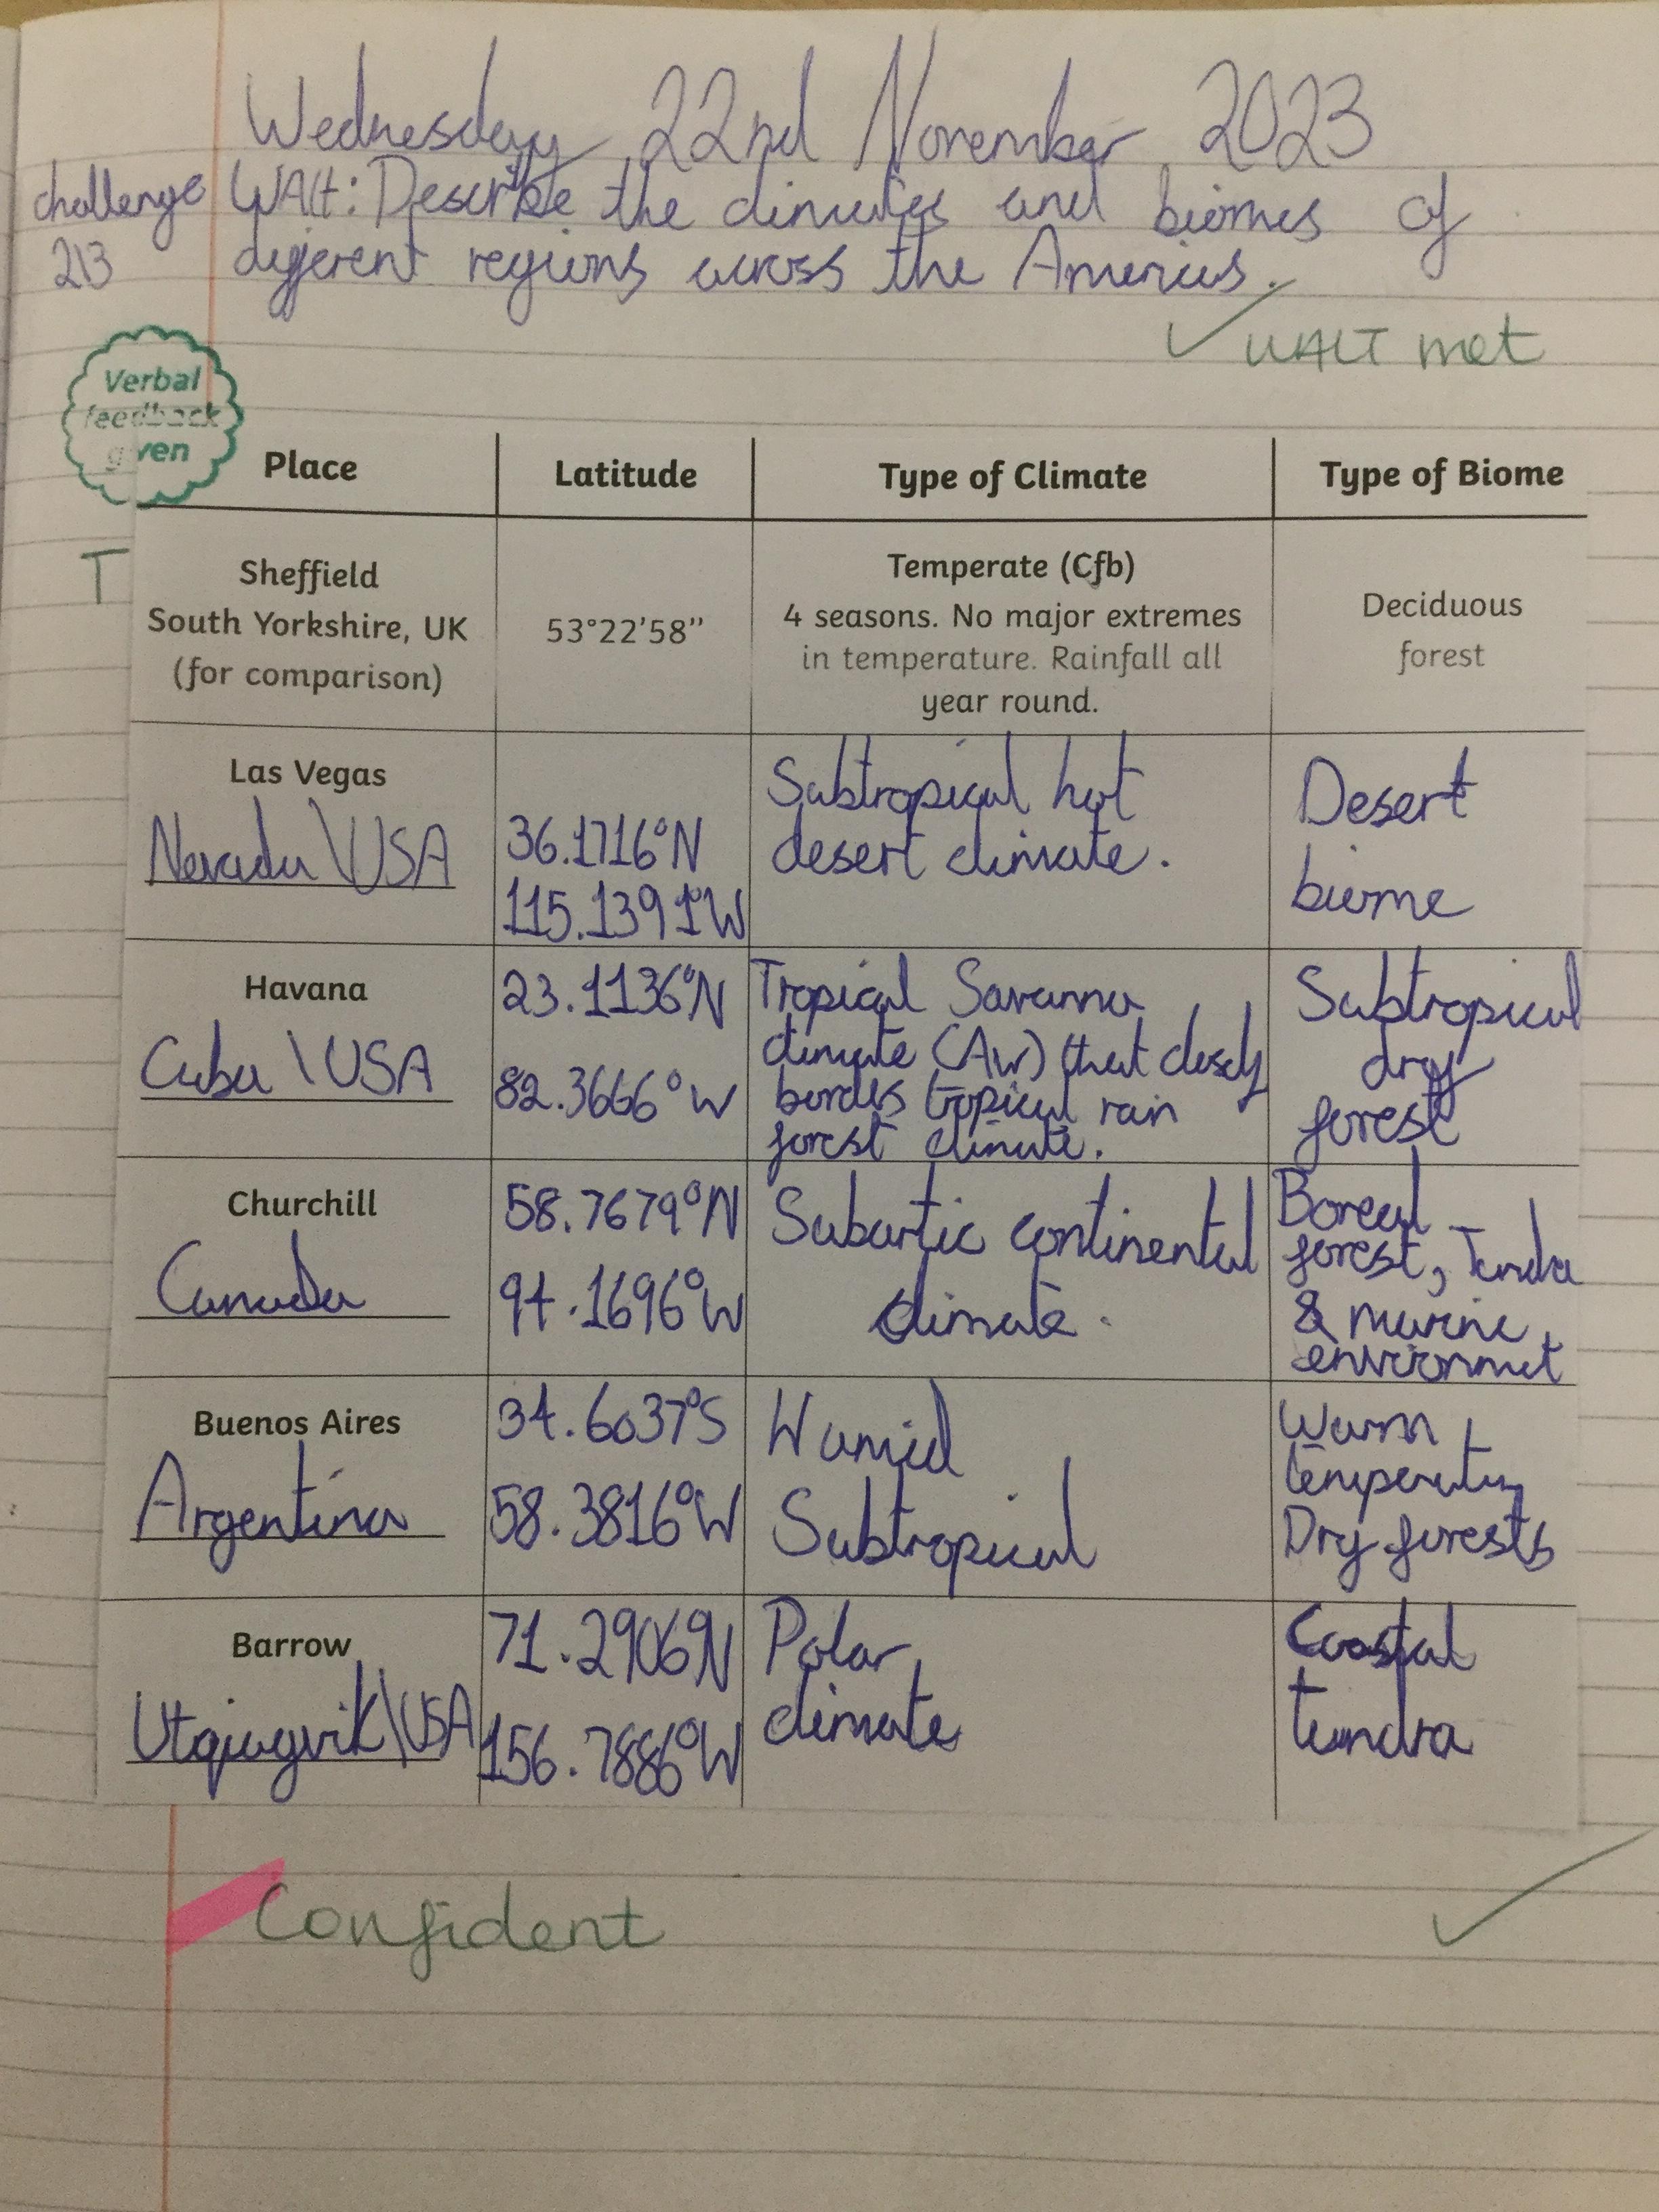 Wednesday 22nd November 2023
challenge WALt: Describe the climates and biomes of
2\3 different regions across the Americas.
WALT met
Verbal
feedback
given
Place Latitude Type of Climate Type of Biome
T
Sheffield
South Yorkshire, UK
(for comparison)
53°22'58''
Temperate (Cfb)
4 seasons. No major extremes
in temperature. Rainfall all
year round.
Deciduous
forest
Las Vegas
Nevada \USA
36.1716°N
115.1391°W
Subtropical hot
desert climate.
Desert
biome
Havana
Cuba \ USA
23.1136°N
82.3666°W
Tropical Savanna
climate (Aw) that closely
borders tropical rain
forest climate.
Subtropical
dry
forest
Churchill
Canada
58.7679°N
94.1696°W
Subartic continental
climate.
Boreal
forest, Tundra
& marine
environmet
Buenos Aires
Argentina
34.6037°S
58.3816°W
Humid
Subtropical
Warm
Dry forests
Barrow
Utqiagvik\USA
71.2906°N
156.7886°W
Polar
climate
Coastal
tundra
Confident